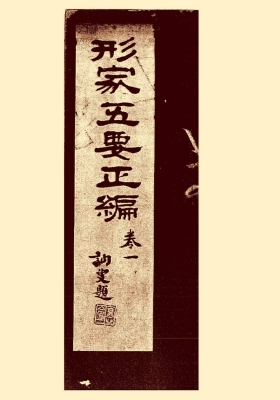 形家五要正編
卷一
叟題